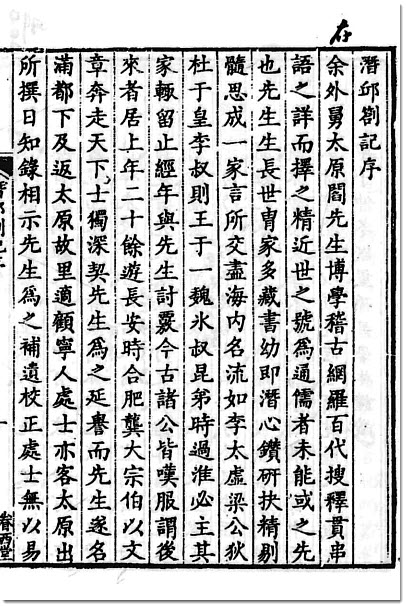 在
潛邱劄記序
余外舅太原閻先生博學稽古網羅百代搜釋貫串
語之詳而擇之精近世之號為通儒者未能或之先
也先生生長世冑家多藏書幼即潛心鑽研抉精剔
髓思成一家言所交盡海內名流如李太虛梁公狄
杜于皇李叔則王于一魏氷叔昆弟時過淮必主其
家輙留止經年與先生討覈今古諸公皆嘆服謂後
來者居上年二十餘遊長安時合肥龔大宗伯以文
章奔走天下士獨深契先生為之延譽而先生遂名
滿都下及返太原故里適顧寧人處士亦客太原出
所撰日知錄相示先生為之補遺校正處士無以易
眷西堂